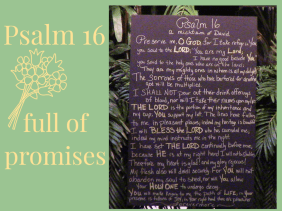 Psalm 16
full of
promises
Psalm 16
a michtam of David.
Preserve me O GOD for I take refuge in You
you said to the LORD: You are my Lord
I have no good besides You
you said to the holy ones who are in the land:
They are my mighty ones in whom is all my delight
The Sorrows of those who have bartered for another
god will be multiplied.
I SHALL NOT pour out their drink offerings
of blood, nor will I take their names upon my lips
THE LORD is the portion of my inheritance and
my cup. YOU support my lot. The lines have fallen
me in pleasant places; indeed my heritage is beautiful
I will BLESS the LORD who has counseled me;
indeed my mind instructs me in the night
I have set THE LORD continually before me;
because HE is at my right hand I will not be shaken
Therefore my heart is glad and my glory rejoices
My flesh also will dwell securely. For YOU will not
abandon my soul to Sheol, nor will You allow
Your HOLY ONE to undergo decay.
You will make known to me the path of LIFE; in your
presence is fullness of joy, in your right hand there are pleasures